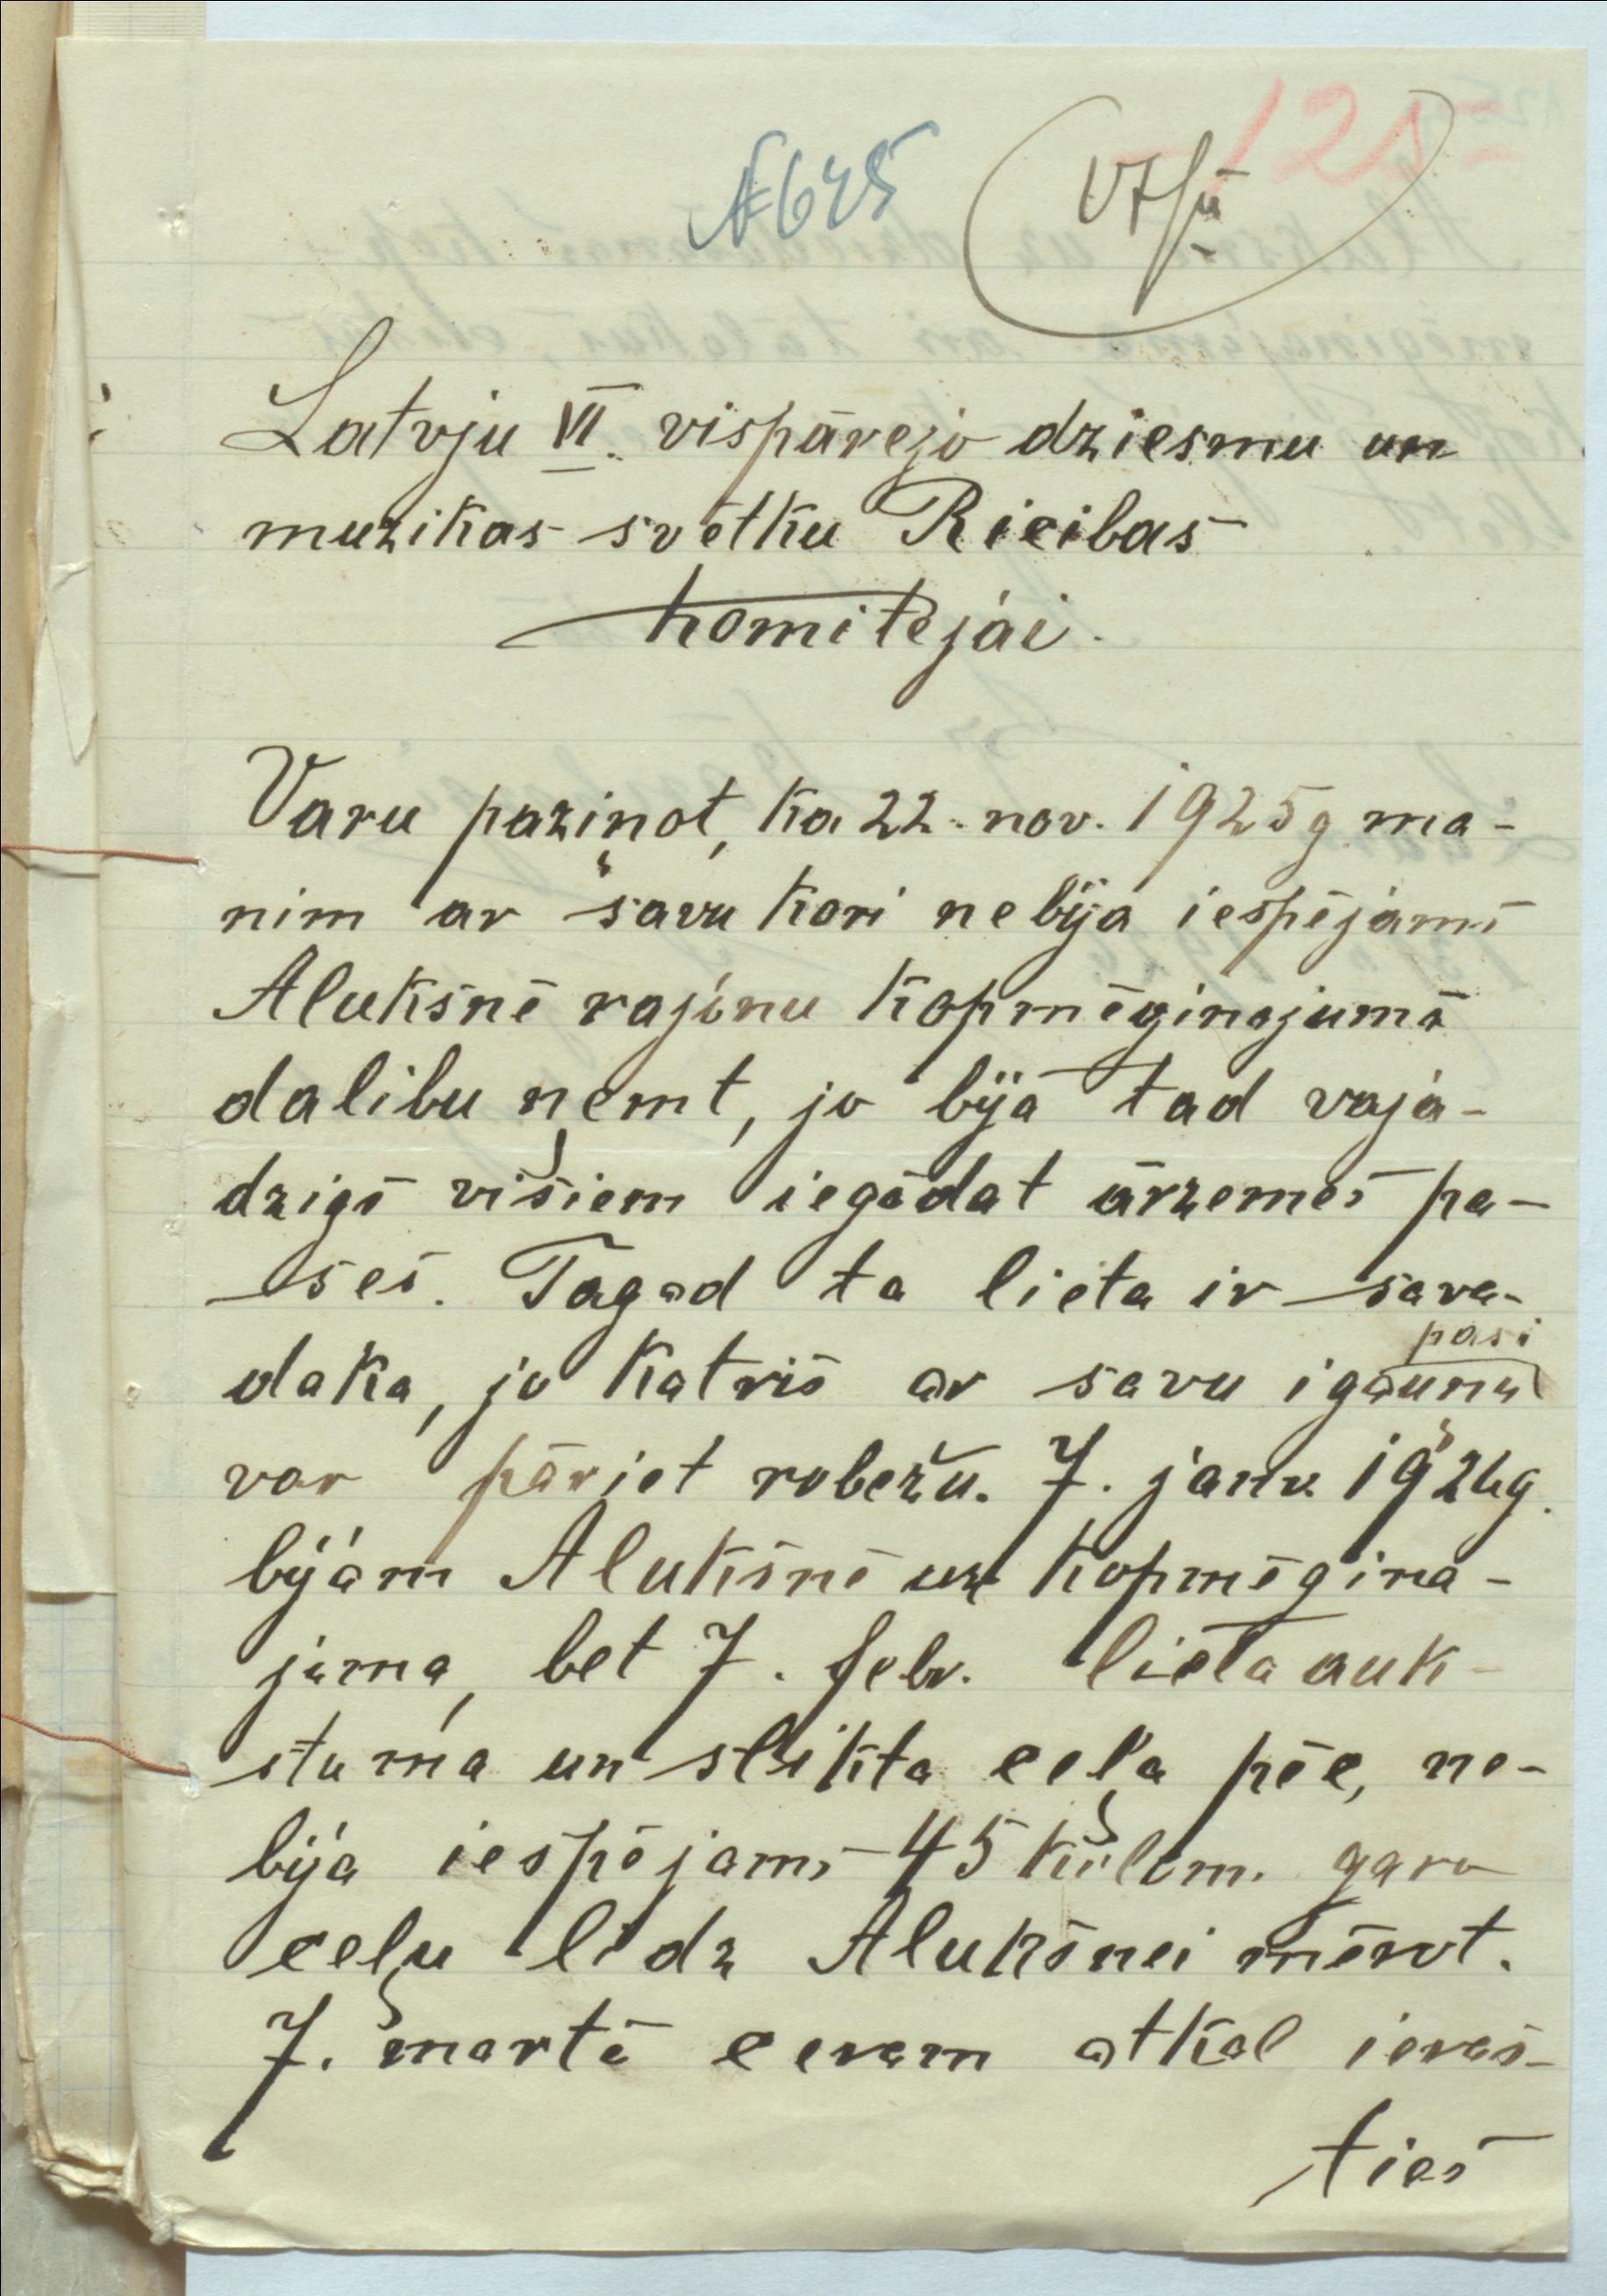 125
№ 645
Latvju VI. vispārejo dziesmu un
muzikas svētku Rīcibas
komitejai.
Varu paziņot, ka 22. nov. 1925 g ma-
nim ar savu kori nebija iespējams
Aluksnē rajonu kopmēģinajumā
dalibu ņemt, jo bija tad vaja-
dzigs visiem iegādat ārzemes pa-
ses. Tagad ta lieta ir sava-
daka, jo katris ar savu igauņu
pasi
var pāriet robežu. 7. janv. 1926 g.
bijam Aluksnē uz kopmēģina-
juma, bet 7. febr. lielā auk-
stuma un slikta ceļa pēc, ne-
bija iespējams 45 kilom. garo
ceļu līdz Aluksnei mērot.
7. martā ceram atkal ieras-
ties